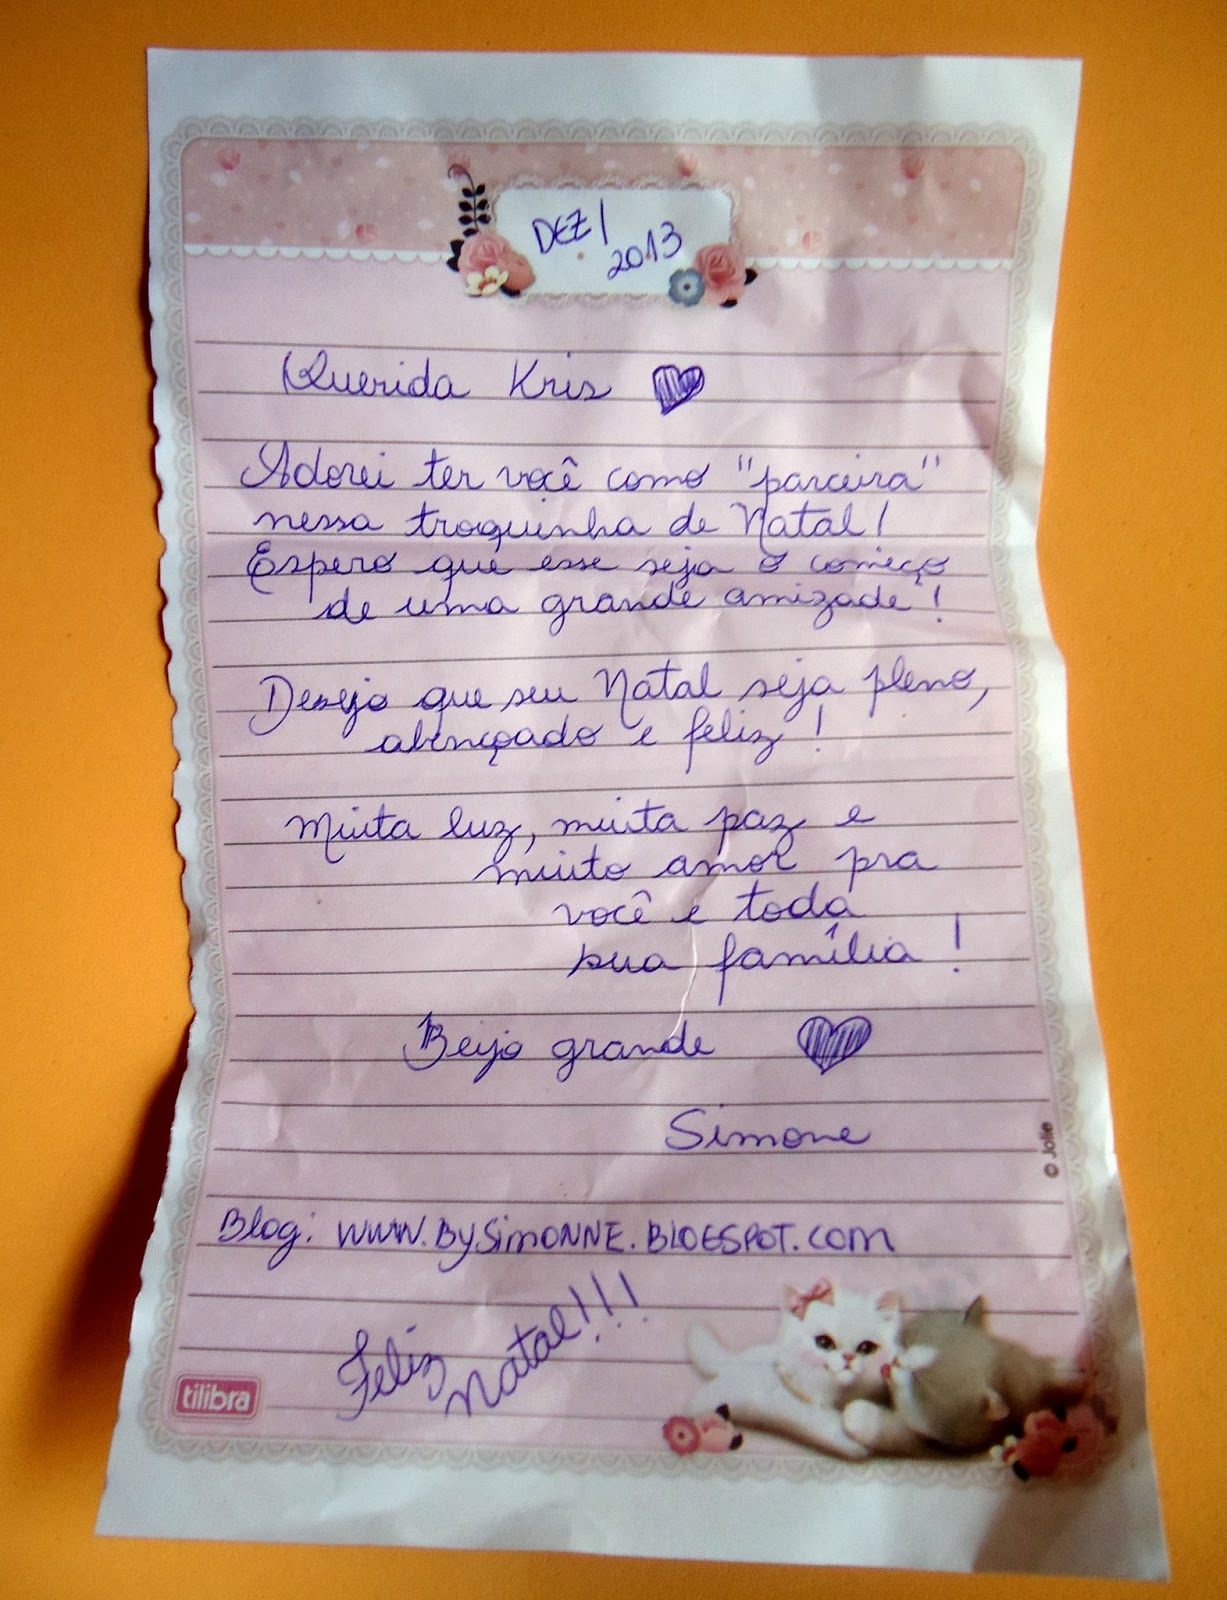 DEZ/
2013
Querida Kris
Adorei ter você como "parceira"
nessa troquinha de Natal!
Espero que esse seja o começo
de uma grande amizade!
Desejo que seu Natal seja pleno,
abençoado e feliz!
Muita luz, muita paz e
muito amor pra
você e toda
sua família!
Beijo grande
Simone
© Jolie
Blog: WWW.BYSIMONNE.BLOGSPOT.COM
Feliz
Natal!!!
tilibra